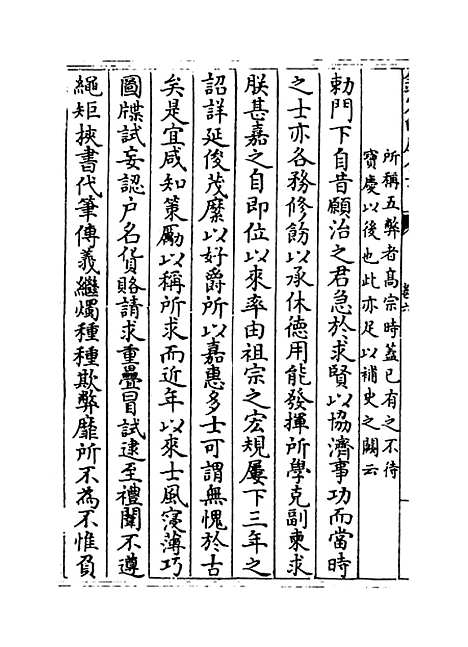 所稱五弊者高宗時蓋已有之不待
寳慶以後也此亦足以補史之闕云
勅門下自昔願治之君急於求賢以協濟事功而當時
之士亦各務修飭以承休徳用能發揮所學克副柬求
朕甚嘉之自即位以來率由祖宗之宏規屢下三年之
詔詳延俊茂縻以好爵所以嘉惠多士可謂無愧於古
矣是宜咸知策勵以稱所求而近年以來士風寖薄巧
圖牒試妄認户名貨賂請求重疊冒試逮至禮闈不遵
繩矩挾書代筆傳義繼燭種種欺弊靡所不為不惟負